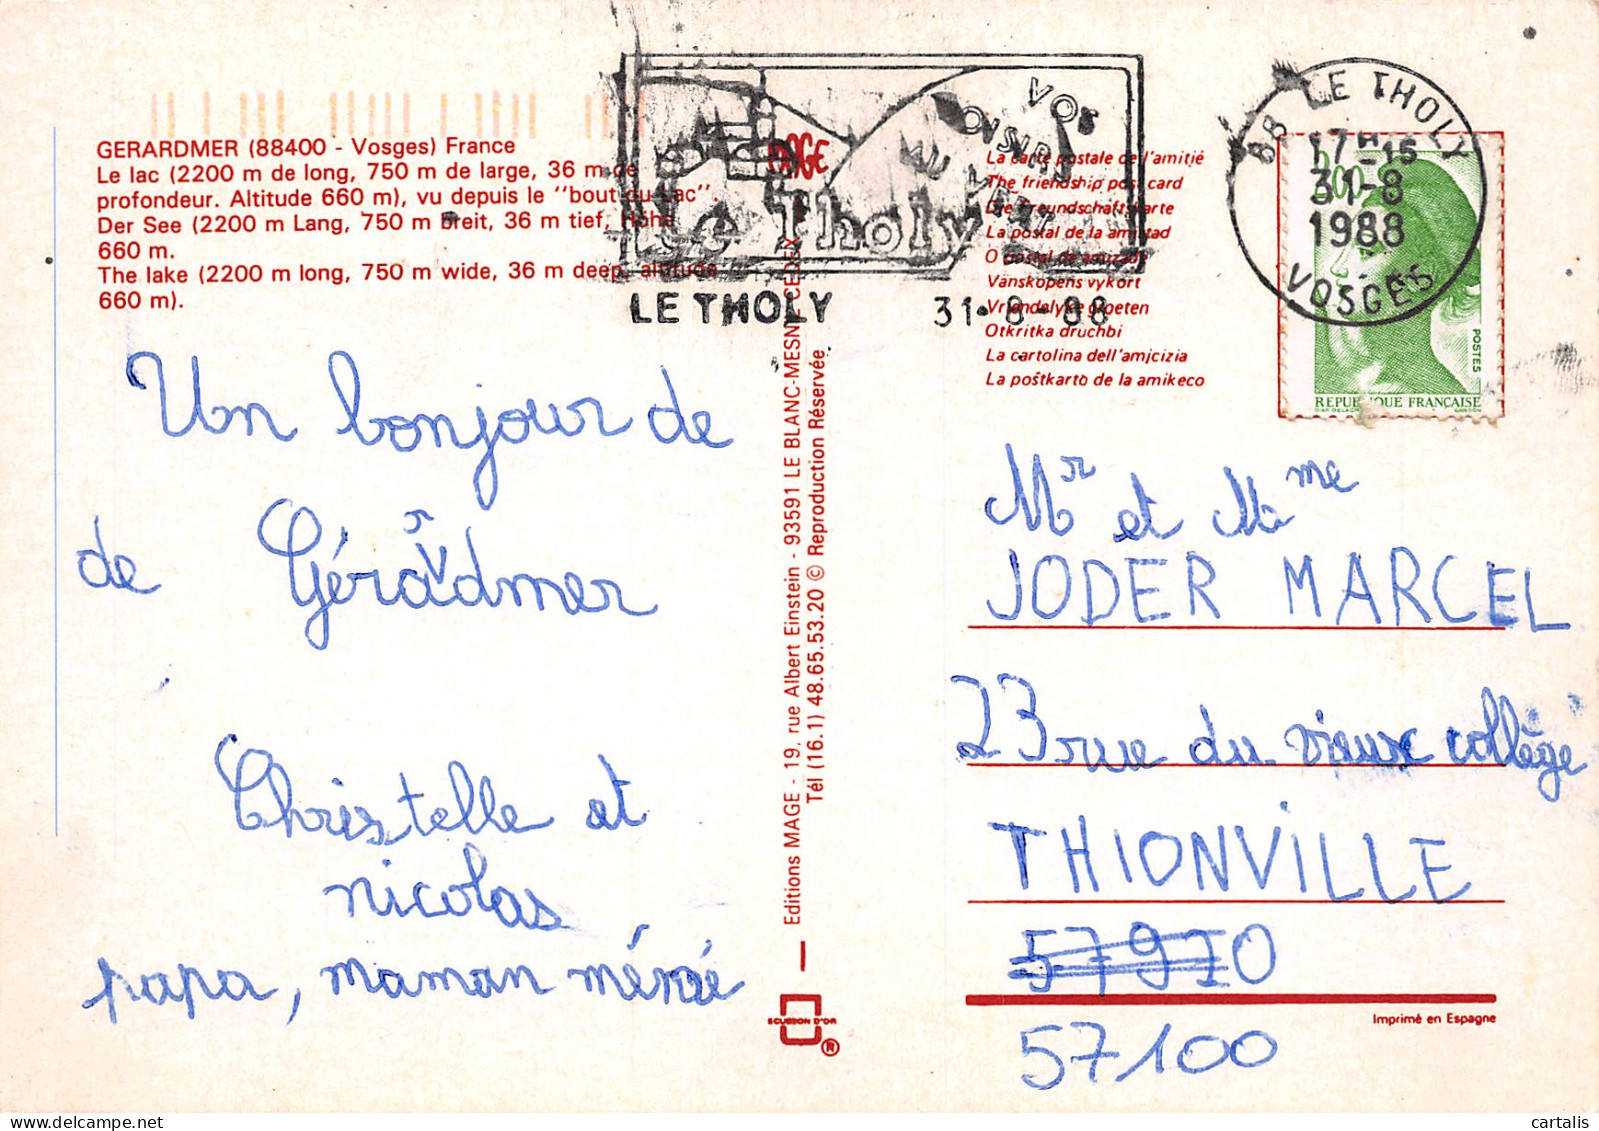 GERARDMER (88400 - Vosges) France
Le lac (2200 m de long, 750 m de large, 36 m de
profondeur. Altitude 660 m), vu depuis le ''bout du Lac''.
Der See (2200 m Lang, 750 m Breit, 36 m tief, Höhe
660 m.
The lake (2200 m long, 750 m wide, 36 m deep, altitude
660 m).
VOS
LOISIRS
AU
Le Tholy
LE THOLY 31-8-88
MAGE
La carte postale de l'amitié
The friendship post card
Die Freundschaftskarte
La postal de la amistad
O postal de amizade
Vänskopens vykort
Vriendelyke groeten
Otkritka druchbi
La cartolina dell'amicizia
La poŝtkarto de la amikeco
88 LE THOLY
17H-15
31-8
1988
VOSGES
POSTES
REPUBLIQUE FRANÇAISE
Un bonjour de
de Gérardmer
r
Christelle et
nicolas
papa, maman
Editions MAGE - 19, rue Albert Einstein - 93591 LE BLANC-MESNIL CEDEX
Tél (16.1) 48.65.53.20 © Reproduction Réservée
ECUSSON D'OR
®
Mr et Mme
JODER MARCEL
23 rue du vieux collège
THIONVILLE
57910
57100
Imprimé en Espagne
cartalis